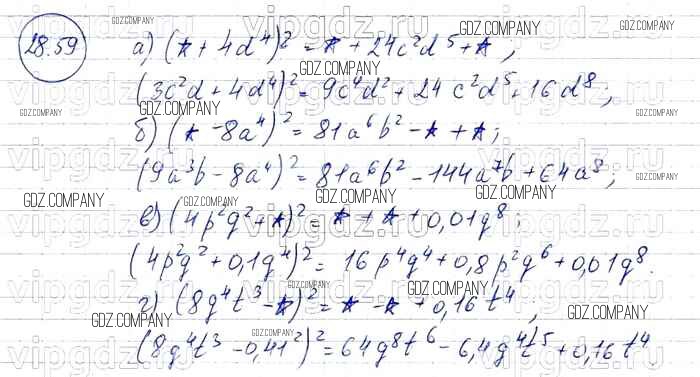 28.59
а) (* + 4d⁴)² = * + 24c²d⁵ + *;
(3c²d + 4d⁴)² = 9c⁴d² + 24c²d⁵ + 16d⁸;
б) (* - 8a⁴)² = 81a⁶b² - * + *;
(9a³b - 8a⁴)² = 81a⁶b² - 144a⁷b + 64a⁸;
в) (4p²g² + *)² = * + * + 0,01g⁸;
(4p²g² + 0,1g⁴)² = 16p⁴g⁴ + 0,8p²g⁶ + 0,01g⁸.
г) (8g⁴t³ - *)² = * - * + 0,16t⁴;
(8g⁴t³ - 0,4t²)² = 64g⁸t⁶ - 6,4g⁴t⁵ + 0,16t⁴
GDZ.COMPANY
vipgdz.ru